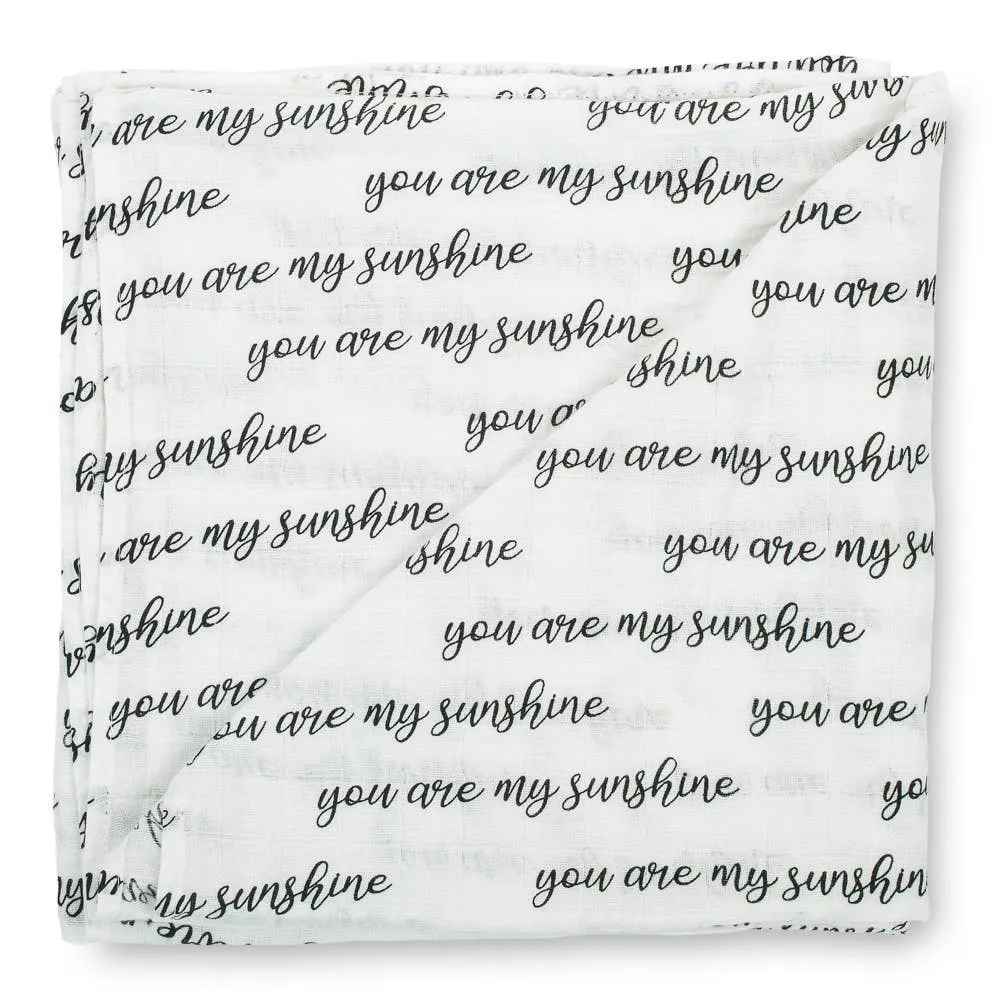 are my sunshine you are my
you are my sunshine
nshine
ine
you are my sunshine you
you are
you are my sunshine
shine you
you
my sunshine
you are my sunshine
are my sunshine
shine you are my su
nshine
you are my sunshine
you are
are my sunshine you are
you are my sunshine yo
my sunshine you are my sunshin